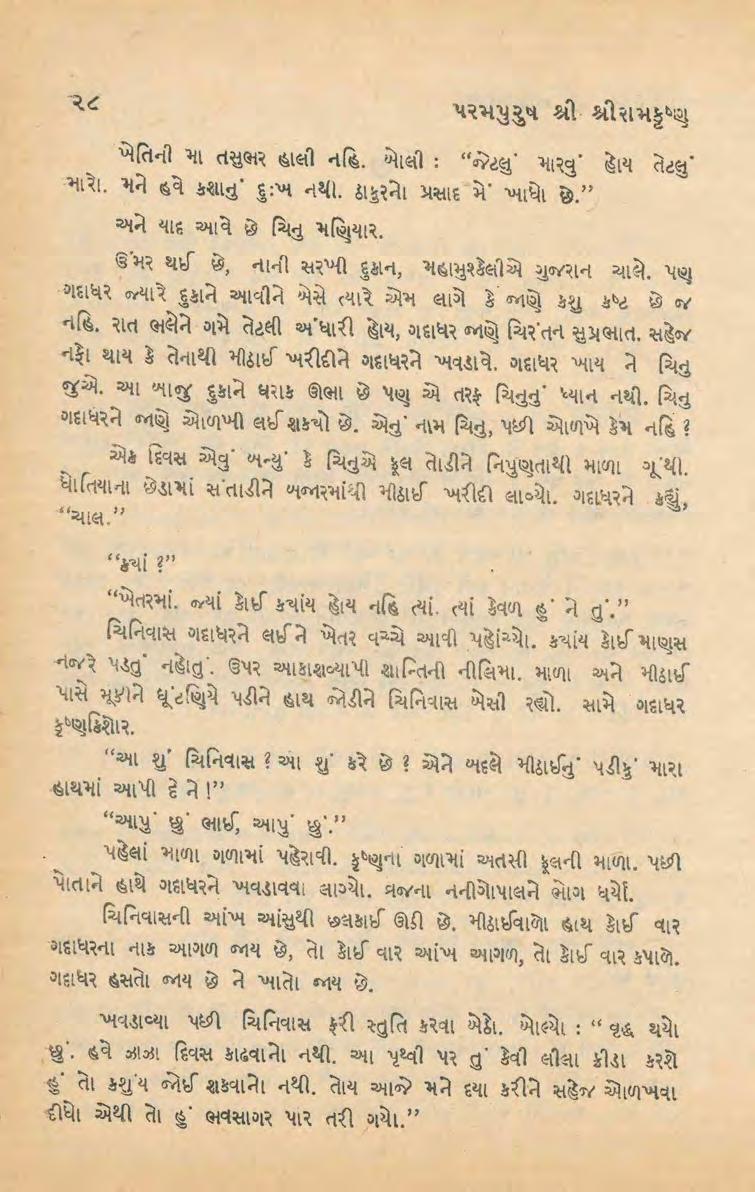 ૨૮
પરમપુરુષ શ્રી શ્રીરામકૃષ્ણ
ખેતિની મા તસુભર હાલી નહિ. બોલી : “જેટલું મારવું હોય તેટલું
મારો. મને હવે કશાનું દુઃખ નથી. ઠાકુરનો પ્રસાદ મેં ખાધો છે.”
અને યાદ આવે છે ચિનુ મણિયાર.
ઉંમર થઈ છે, નાની સરખી દુકાન, મહામુશ્કેલીએ ગુજરાન ચાલે. પણ
ગદાધર જ્યારે દુકાને આવીને બેસે ત્યારે એમ લાગે કે જાણે કશુ કષ્ટ છે જ
નહિ. રાત ભલેને ગમે તેટલી અંધારી હોય, ગદાધર જાણે ચિરંતન સુપ્રભાત. સહેજ
નફો થાય કે તેનાથી મીઠાઈ ખરીદીને ગદાધરને ખવડાવે. ગદાધર ખાય ને ચિનુ
જુએ. આ બાજુ દુકાને ઘરાક ઊભા છે પણ એ તરફ ચિનુનું ધ્યાન નથી. ચિનુ
ગદાધરને જાણે ઓળખી લઈ શકયો છે. એનું નામ ચિનુ, પછી ઓળખે કેમ નહિ ?
એક દિવસ એવું બન્યું કે ચિનુએ ફૂલ તોડીને નિપુણતાથી માળા ગૂંથી.
ધોતિયાના છેડામાં સંતાડીને બજારમાંથી મીઠાઈ ખરીદી લાવ્યો. ગદાધરને કહ્યું,
“ચાલ.”
“કયાં ?”
“ખેતરમાં. જ્યાં કોઈ કયાંય હોય નહિ ત્યાં. ત્યાં કેવળ હું ને તું.”
ચિનિવાસ ગદાધરને લઈને ખેતર વચ્ચે આવી પહોંચ્યો. કયાંય કોઈ માણસ
નજરે પડતું નહોતું. ઉપર આકાશવ્યાપી શાન્તિની નીલિમા. માળા અને મીઠાઈ
પાસે મૂકીને ઘૂંટણિયે પડીને હાથ જોડીને ચિનિવાસ બેસી રહ્યો. સામે ગદાધર
કૃષ્ણકિશોર.
“આ શું ચિનિવાસ ? આ શું કરે છે ? એને બદલે મીઠાઈનું પડીકું મારા
હાથમાં આપી દે ને !”
“આપું છું ભાઈ, આપું છું.”
પહેલાં માળા ગળામાં પહેરાવી. કૃષ્ણના ગળામાં અતસી ફૂલની માળા. પછી
પોતાને હાથે ગદાધરને ખવડાવવા લાગ્યો. વ્રજના નનીગોપાલને ભોગ ધર્યો.
ચિનિવાસની આંખ આંસુથી છલકાઈ ઊઠી છે. મીઠાઈવાળો હાથ કોઈ વાર
ગદાધરના નાક આગળ જાય છે, તો કોઈ વાર આંખ આગળ, તો કોઈ વાર કપાળે.
ગદાધર હસતો જાય છે ને ખાતો જાય છે.
ખવડાવ્યા પછી ચિનિવાસ ફરી સ્તુતિ કરવા બેઠો. બોલ્યો : “ વૃદ્ધ થયો
છું. હવે ઝાઝા દિવસ કાઢવાનો નથી. આ પૃથ્વી પર તું કેવી લીલા ક્રીડા કરશે
હું તો કશુંય જોઈ શકવાનો નથી. તોય આજે મને દયા કરીને સહેજ ઓળખવા
દીધો એથી તો હું ભવસાગર પાર તરી ગયો.”